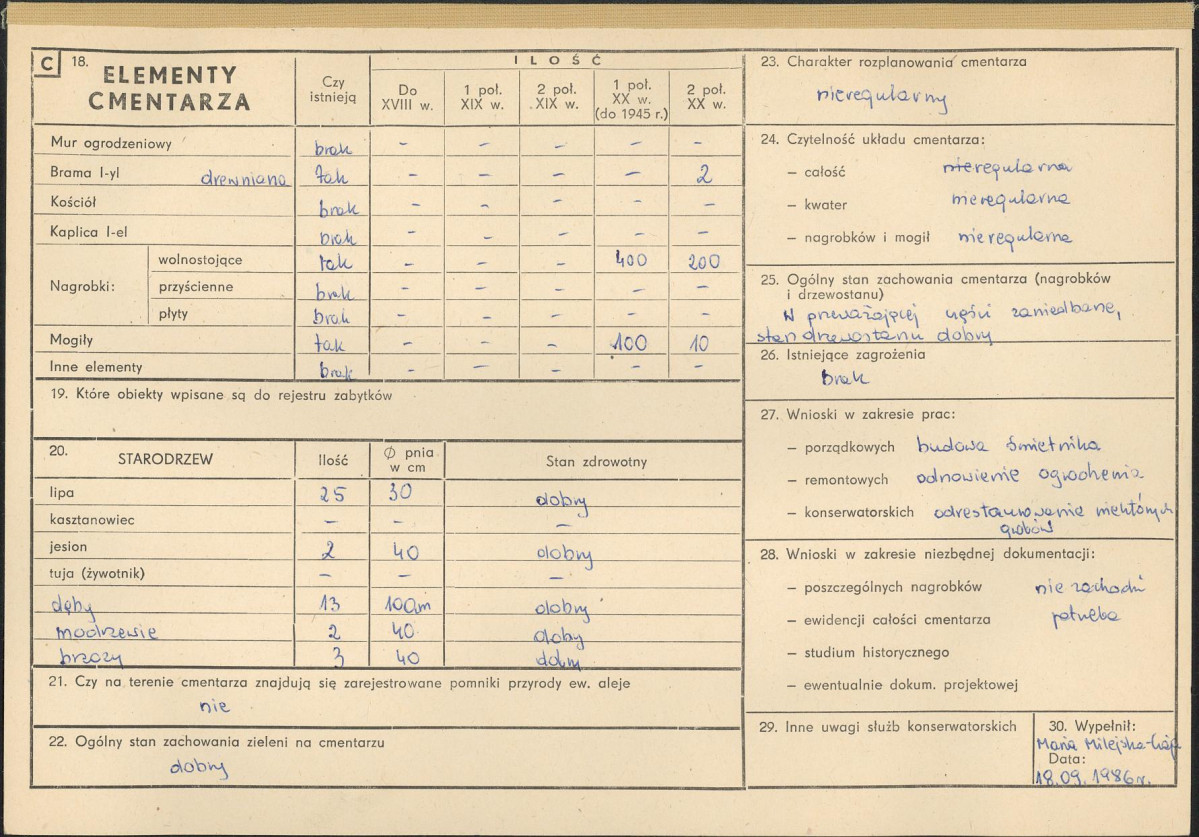 C 18. ELEMENTY CMENTARZA
Czy istnieją
ILOŚĆ
Do XVIII w.
1 poł. XIX w.
2 poł. XIX w.
1 poł. XX w. (do 1945 r.)
2 poł. XX w.
Mur ogrodzeniowy brak – – – – –
Brama I-yl drewniana tak – – – – 2
Kościół brak – – – – –
Kaplica I-el brak – – – – –
Nagrobki:
wolnostojące tak – – – 400 200
przyścienne brak – – – – –
płyty brak – – – – –
Mogiły tak – – – 100 10
Inne elementy brak – – – – –
19. Które obiekty wpisane są do rejestru zabytków
20. STARODRZEW Ilość Ø pnia w cm Stan zdrowotny
lipa 25 30 dobry
kasztanowiec – – –
jesion 2 40 dobry
tuja (żywotnik) – – –
dęby 13 100cm dobry
modrzewie 2 40 doby
brzozy 3 40 dobry
21. Czy na terenie cmentarza znajdują się zarejestrowane pomniki przyrody ew. aleje
nie
22. Ogólny stan zachowania zieleni na cmentarzu
dobry
23. Charakter rozplanowania cmentarza
nieregularny
24. Czytelność układu cmentarza:
– całość nieregularna
– kwater nieregularna
– nagrobków i mogił nieregularna
25. Ogólny stan zachowania cmentarza (nagrobków
i drzewostanu)
W przeważającej części zaniedbane,
stan drzewostanu dobry
26. Istniejące zagrożenia
brak
27. Wnioski w zakresie prac:
– porządkowych budowa śmietnika
– remontowych odnowienie ogrodzenia
– konserwatorskich odrestaurowanie niektórych
grobów
28. Wnioski w zakresie niezbędnej dokumentacji:
– poszczególnych nagrobków nie zachodzi
– ewidencji całości cmentarza potrzeba
– studium historycznego
– ewentualnie dokum. projektowej
29. Inne uwagi służb konserwatorskich
30. Wypełnił:
Maria Milejska-
Data:
18.09.1986 r.